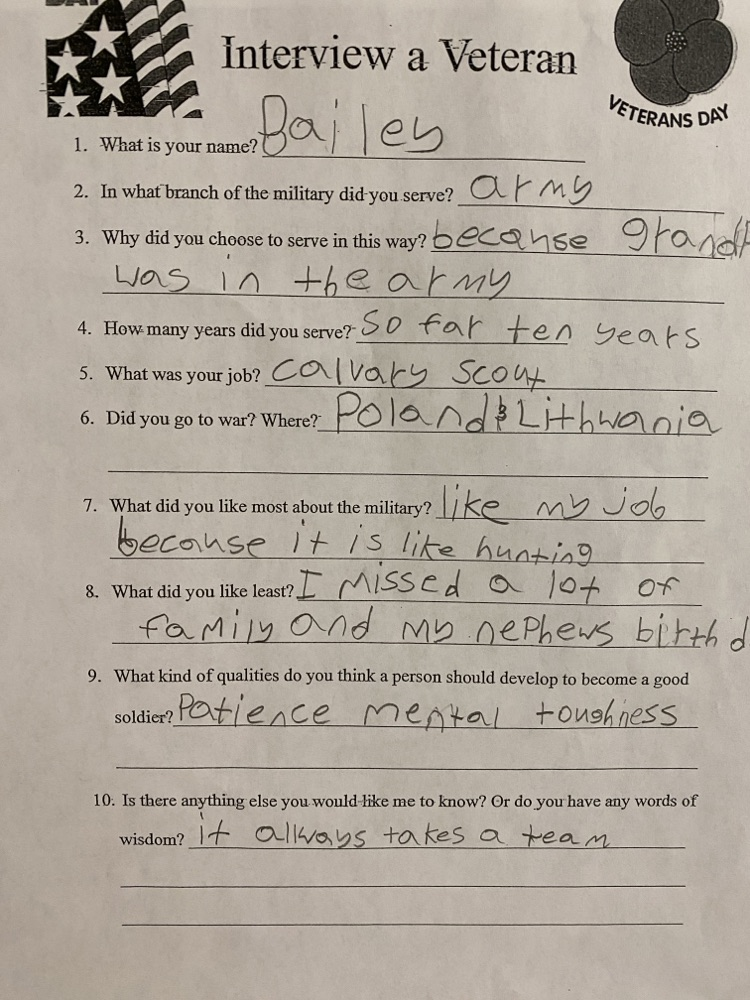 Interview a Veteran
VETERANS DAY
1. What is your name? Bailey
2. In what branch of the military did you serve? army
3. Why did you choose to serve in this way? because
was in the army
4. How many years did you serve? So far ten years
5. What was your job? calvary scout
6. Did you go to war? Where? Poland & Lithwania
7. What did you like most about the military? like my job
because it is like hunting
8. What did you like least? I missed a lot of
family and my nephews birthd
9. What kind of qualities do you think a person should develop to become a good
soldier? Patience mental toughness
10. Is there anything else you would like me to know? Or do you have any words of
wisdom? it always takes a team